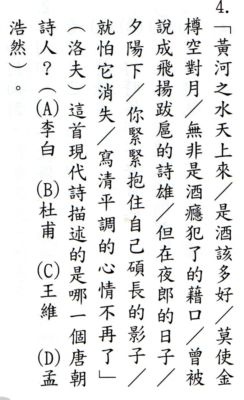 4.「黃河之水天上來／是該多好／莫使金
樽空對月／無非是酒癮犯了的藉口／曾被
說成飛揚跋扈的詩雄／但在夜郎的日子／
夕陽下／你緊緊抱住自己碩長的影子／
就怕它消失／寫清平調的心情不再了」
（洛夫）這首現代詩描述的是哪一個唐朝
詩人？(A)李白 (B)杜甫 (C)王維 (D)孟
浩然）。